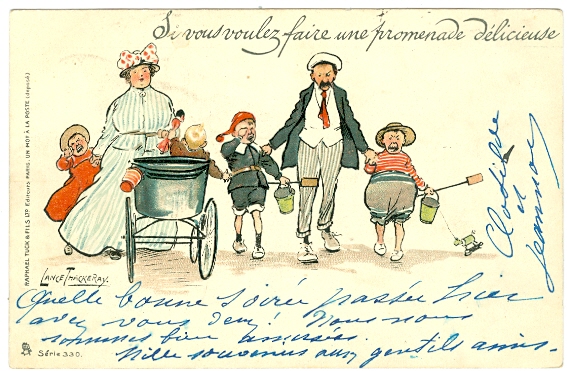 Si vous voulez faire une promenade délicieuse
RAPHAEL TUCK & FILS LTD Editeurs PARIS. UN MOT À LA POSTE (déposé)
LANCE THACKERAY.
Série 330.
Quelle bonne soirée passée hier
avec vous deux! Nous nous
sommes bien amusés.
Mille souvenirs aux gentils amis.
et
Jeannot